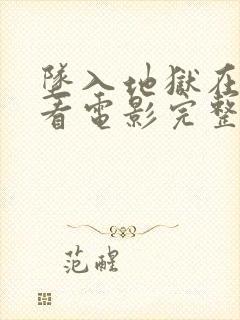 墜入地獄在
看電影完整
范醒